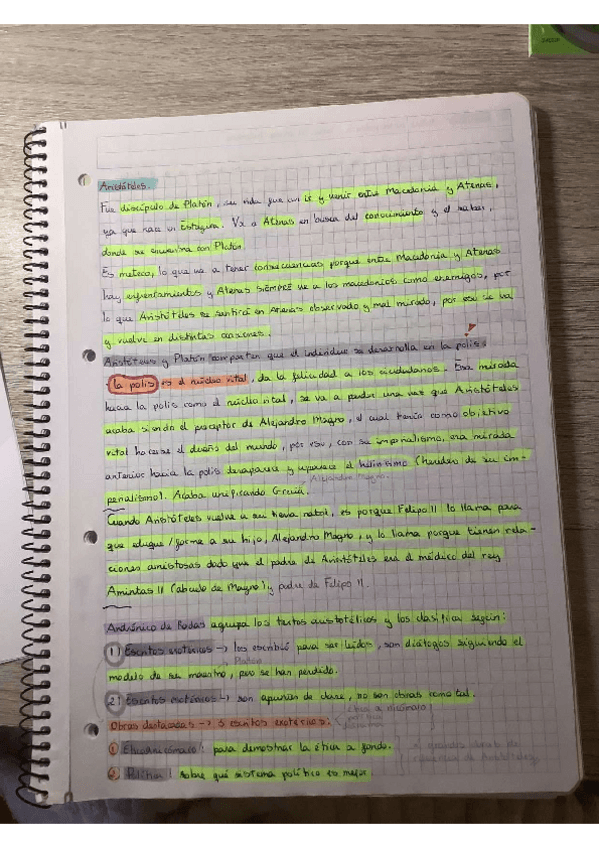 Aristóteles.
Fue discípulo de Platón, su vida fue un ir y venir entre Macedonia y Atenas,
ya que nace en Estagira. Va a Atenas en busca del conocimiento y el saber,
donde se encuentra con Platón.
Es meteco, lo que va a tener consecuencias porque entre Macedonia y Atenas
hay enfrentamientos y Atenas SIEMPRE ve a los macedonios como enemigos, por
lo que Aristóteles se sentirá en Atenas observado y mal mirado, por eso se va
y vuelve en distintas ocasiones.
Aristóteles y Platón comparten que el individuo se desarrolla en la polis
la polis es el núcleo vital, da la felicidad a los ciudadanos. Esa mirada
hacia la polis como el núcleo vital, se va a perder una vez que Aristóteles
acaba siendo el preceptor de Alejandro Magno, el cual tenía como objetivo
vital hacerse el dueño del mundo, por eso, con su imperialismo, esa mirada
anterior hacia la polis desaparece y aparece el helenismo (heredero de su im-
perialismo). Acaba unificando Grecia.
Alejandro Magno
Cuando Aristóteles vuelve a su tierra natal, es porque Felipo II lo llama para
que eduque/forme a su hijo, Alejandro Magno, y lo llama porque tienen rela-
ciones amistosas dado que el padre de Aristóteles era el médico del rey
Amintas II (abuelo de Magno) y padre de Felipo II.
Andrónico de Rodas agrupa los textos aristotélicos y los clasifica según:
1) Escritos exotéricos → los escribió para ser leídos, son diálogos siguiendo el
Platón
modelo de su maestro, pero se han perdido.
2) Escritos esotéricos → son apuntes de clase, no son obras como tal.
Obras destacadas → 3 escritos esotéricos:
① Ética nicómaco: para demostrar la ética a fondo.
② Política: Sobre qué sistema político es mejor.